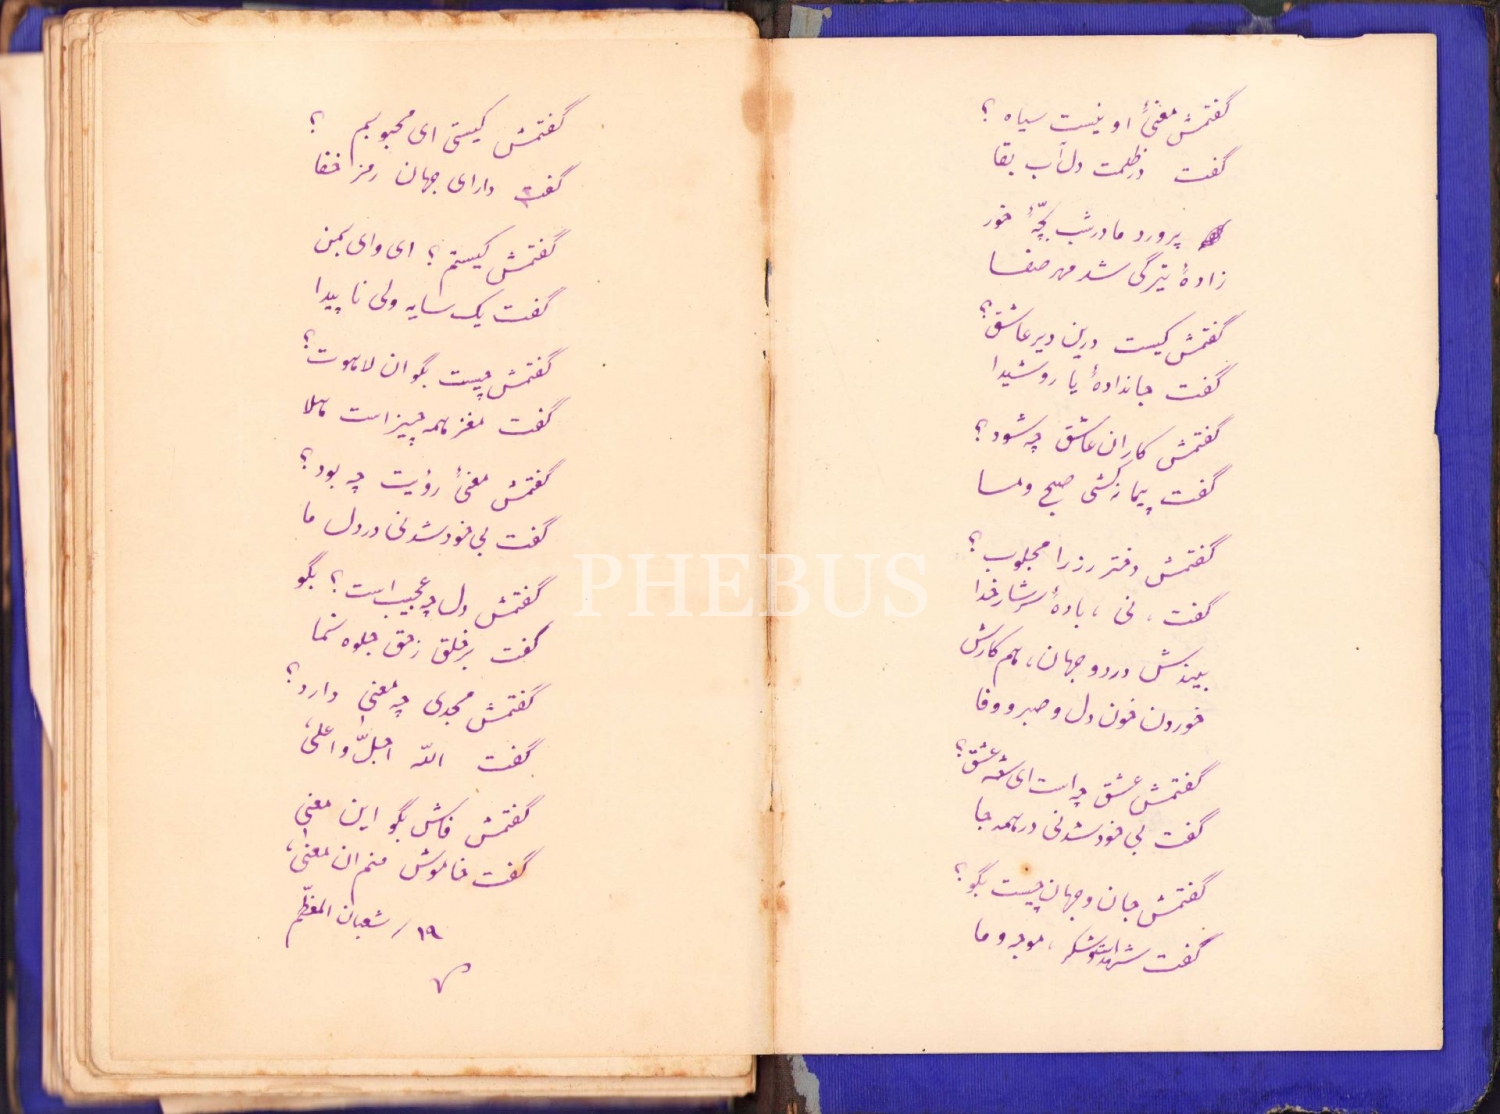 گفتمش معنیٔ او نیست سیاه ؟
گفت در ظلمت دل آب بقا
پرورد مادر شب بچّهٔ خور
زادهٔ تیرگی شد مهر صفا
گفتمش کیست درین دیر عاشق ؟
گفت جاندادهٔ یار و شیدا
گفتمش کار ان عاشق چه شود ؟
گفت پیمانه کشی صبح و مسا
گفتمش دختر رز را مجلوب ؟
گفت ، نی ، بادهٔ سرشار خدا
بیندش در دو جهان ، هم کارش
خوردن خون دل و صبر و وفا
گفتمش عشق چه است ای عشق ؟
گفت بی خود شدنی در همه جا
گفتمش جان و جهان چیست بگو ؟
گفت ، موجه و ما
گفتمش کیستی ای محبوبم ؟
گفت دارای جهان رمز خفا
گفتمش کیستم ؟ ای وای بمن
گفت یک سایه ولی نا پیدا
گفتمش چیست بگو ان لاهوت ؟
گفت مغز همه چیز است هلا
گفتمش معنیٔ رؤیت چه بود ؟
گفت بی خود شدنی در دل ما
گفتمش دل چه عجیب است ؟ بگو
گفت بر خلق ز حق جلوه نما
گفتمش مجدی چه معنی دارد ؟
گفت اللّه اجلّ و اعلی
گفتمش فاش بگو این معنی
گفت خاموش منم ان معنی
١٩ / شعبان المعظّم
PHEBUS